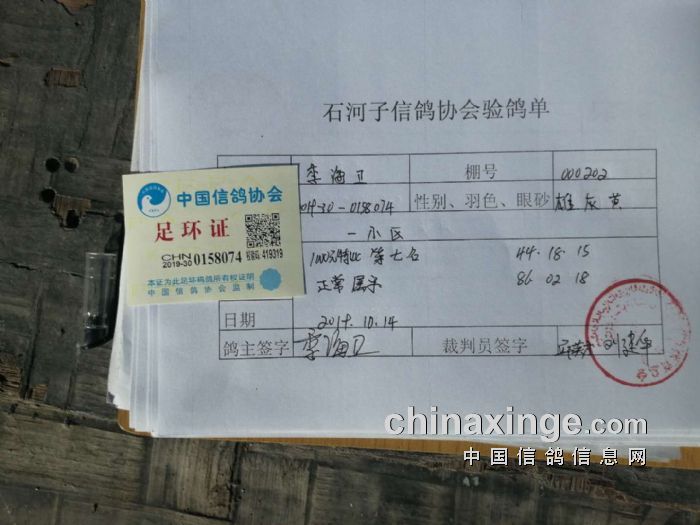 石河子信鸽协会验鸽单
李海卫 棚号 000202
2019-30-0158074 性别、羽色、眼砂 雄 灰 黄
一小区
44.18.15
正常 属实 86 02 18
日期 2019.10.14
鸽主签字 李海卫 裁判员签字
中国信鸽协会
足环证
CHN
2019-30 0158074 校验码:419319
本证为此足环码鸽所有权证明
中国信鸽协会监制
chinaxinge.com
中国信鸽信息网